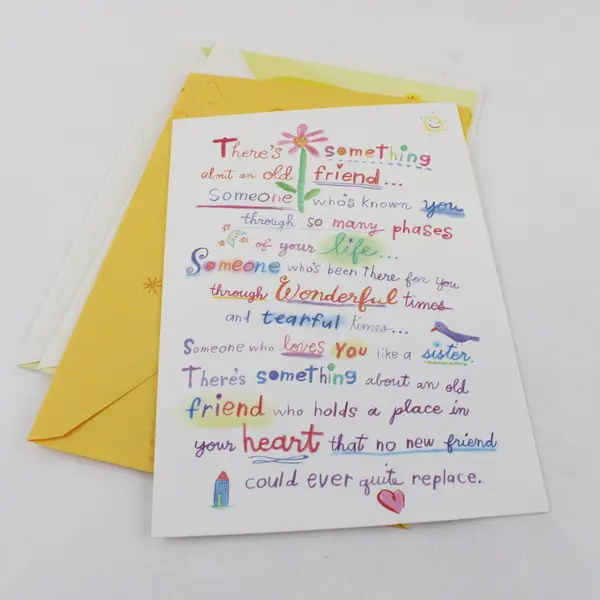 There's something
about an old friend...
Someone who's known you
through so many phases
of your life...
Someone who's been there for you
through Wonderful times
and tearful times...
Someone who loves You like a sister.
There's something about an old
friend who holds a place in
your heart that no new friend
could ever quite replace.